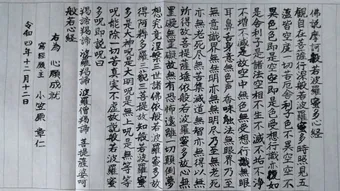 佛説摩訶般若波羅蜜多心経
観自在菩薩行深般若波羅蜜多時照見五
蘊皆空度一切苦厄舎利子色不異空空不
異色色即是空空即是色受想行識亦復如
是舎利子是諸法空相不生不滅不垢不浄
不増不減是故空中無色無受想行識無眼
耳鼻舌身意無色声香味触法無眼界乃至
無意識界無無明亦無無明尽乃至無老死
亦無老死尽無苦集滅道無智亦無得以無
所得故菩提薩埵依般若波羅蜜多故心無
罣礙無罣礙故無有恐怖遠離一切顛倒夢
想究竟涅槃三世諸佛依般若波羅蜜多故
得阿耨多羅三藐三菩提故知般若波羅蜜
多是大神呪是大明呪是無上呪是無等等
呪能除一切苦真実不虚故説般若波羅蜜
多呪即説呪曰
羯諦羯諦波羅羯諦波羅僧羯諦菩提薩婆訶
般若心経
右為 心願成就
願主 小笠原 章仁
令和四年十二月十二日